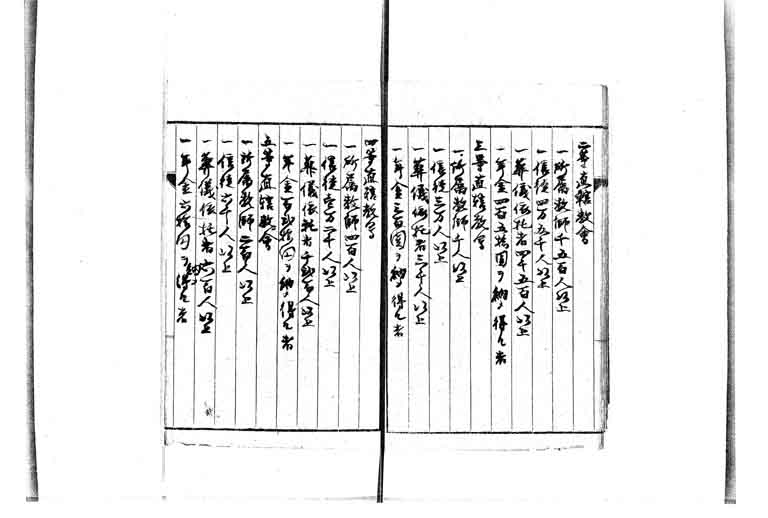 二等直轄教會
一所属教師千五百人以上
一信徒四万五千人以上
一葬儀依托者四千五百人以上
一年金四百五拾圓ヲ納メ得ル者
三等直轄教會
一所属教師千人以上
一信徒三万人以上
一葬儀依托者三千人以上
一年金三百圓ヲ納メ得ル者
四等直轄教會
一所属教師四百人以上
一信徒壱万二千人以上
一葬儀依托者千弐百人以上
一年金百弐拾円ヲ納メ得ル者
五等直轄教會
一所属教師二百人以上
一信徒六千人以上
一葬儀依托者六百人以上
一年金六拾円ヲ納メ得ル者